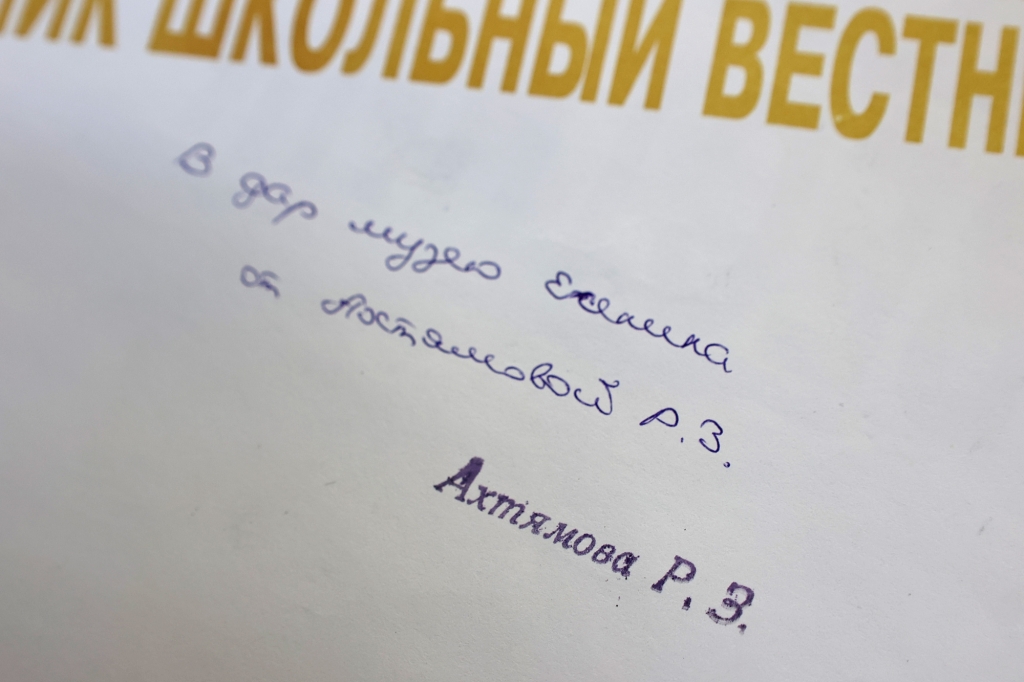 ИК ШКОЛЬНЫЙ ВЕСТН
В дар музею
от Ахтямовой Р.З.
Ахтямова Р. З.